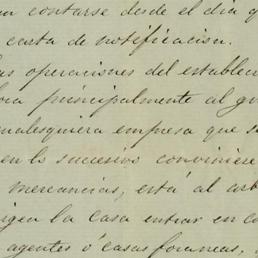 contarse desde el dia q
carta de notificacion.
as operaciones del establec
principalmente al g
alesquiera empresa que s
en lo sucesivo conviniere
mercancias, está al arb
igen la casa entrar en co
agentes ó casas foraneas,